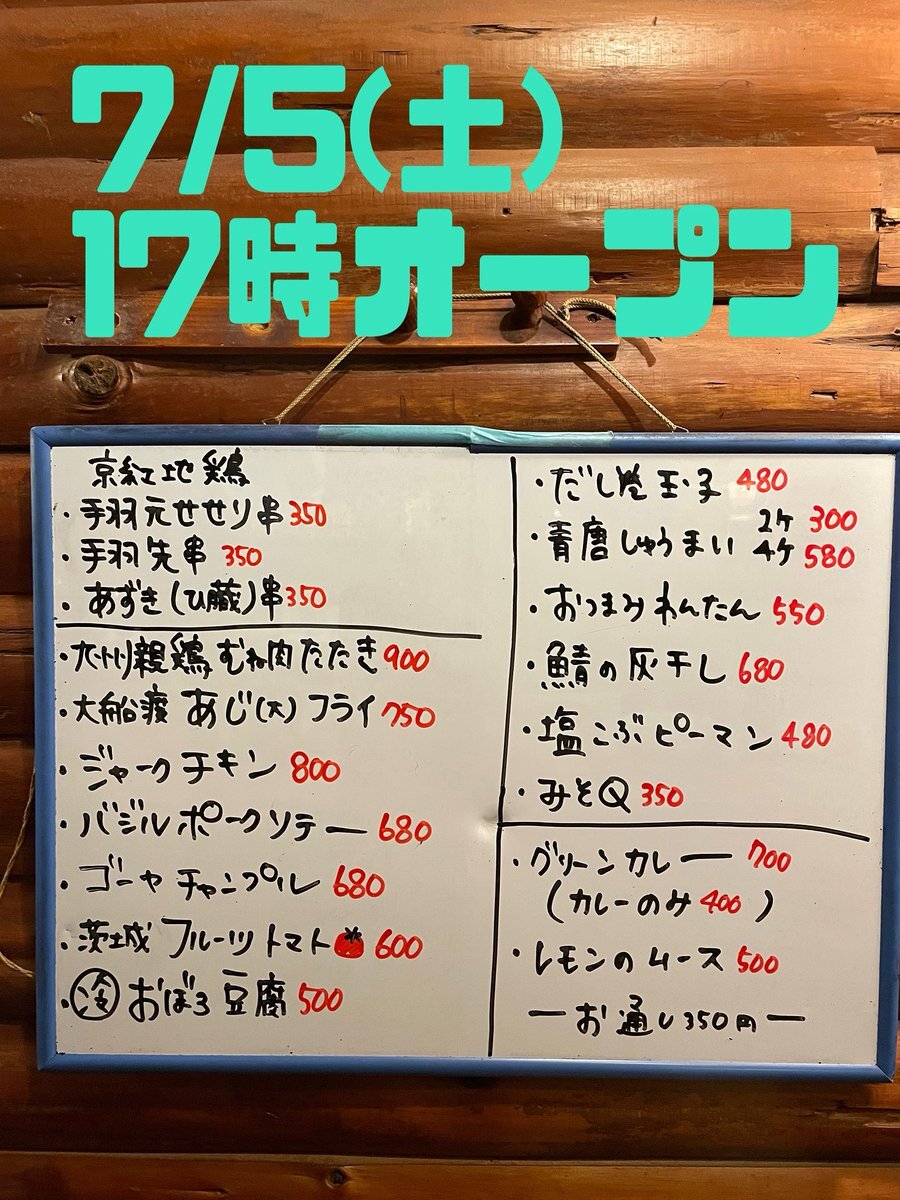 7/5(土)
17時オープン
京紅地鶏
・手羽元せせり串350
・手羽先串 350
・あずき(ひ臓)串350
・九州親鶏むね肉たたき900
・大船渡 あじ(大)フライ750
・ジャークチキン 800
・バジルポークソテー 680
・ゴーヤチャンプル 680
・茨城フルーツトマト 600
・冷 おぼろ豆腐 500
・だし巻玉子 480
・青唐しゅうまい 2ケ 300
4ケ 580
・おつまみわんたん 550
・鯖の灰干し 680
・塩こぶピーマン 480
・みそQ 350
・グリーンカレー 700
(カレーのみ 400)
・レモンのムース 500
ーお通し350円ー